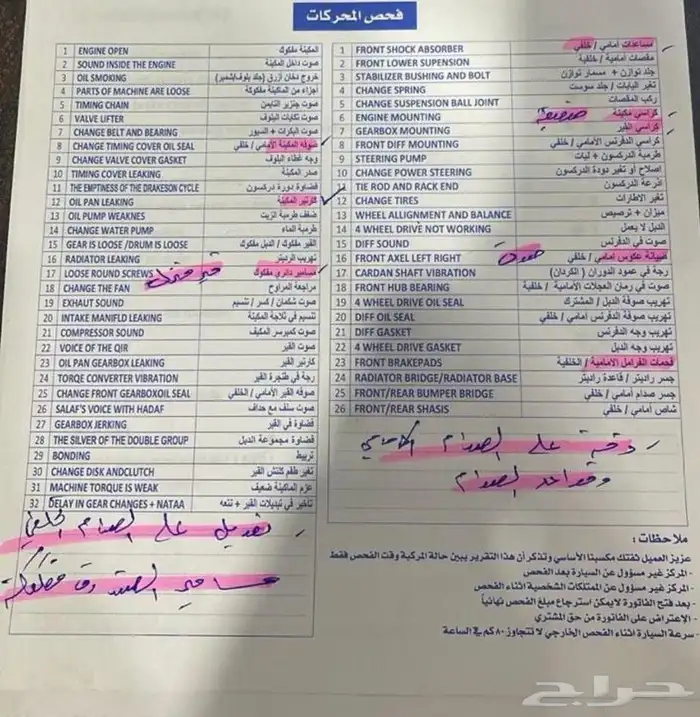 فحص المحركات
1 ENGINE OPEN المكينة مفكوك
2 SOUND INSIDE THE ENGINE صوت داخل المكينة
3 OIL SMOKING خروج دخان أزرق (جلد بلوف/بشمير)
4 PARTS OF MACHINE ARE LOOSE أجزاء من الماكينة مفكوكة
5 TIMING CHAIN صوت جنزير التايمن
6 VALVE LIFTER صوت تكايات البلوف
7 CHANGE BELT AND BEARING صوت البكرات + السيور
8 CHANGE TIMING COVER OIL SEAL صوفه المكينة الأمامي / خلفي
9 CHANGE VALVE COVER GASKET وجه غطاء البلوف
10 TIMING COVER LEAKING صدر المكينة
11 THE EMPTINESS OF THE DRAKESON CYCLE فضاوة دورة دركسون
12 OIL PAN LEAKING كارتير المكينة
13 OIL PUMP WEAKNES ضعف طرمبة الزيت
14 CHANGE WATER PUMP طرمبة الماء
15 GEAR IS LOOSE /DRUM IS LOOSE القير مفكوك / الدبل مفكوك
16 RADIATOR LEAKING تهريب الرديتر
17 LOOSE ROUND SCREWS مسامير دائري مفكوك
18 CHANGE THE FAN مراجعة المراوح
19 EXHAUT SOUND صوت شكمان / كسر / تنسيم
20 INTAKE MANIFLD LEAKING تنسيم في ثلاجة المكينة
21 COMPRESSOR SOUND صوت كمبرسر المكيف
22 VOICE OF THE QIR صوت القير
23 OIL PAN GEARBOX LEAKING كارتير القير
24 TORQE CONVERTER VIBRATION رجة في طنجرة القير
25 CHANGE FRONT GEARBOXOIL SEAL صوفه القير الأمامي / الخلفي
26 SALAF'S VOICE WITH HADAF صوت سلف مع حداف
27 GEARBOX JERKING فضاوة في القير
28 THE SILVER OF THE DOUBLE GROUP فضاوة مجموعة الدبل
29 BONDING تربيط
30 CHANGE DISK ANDCLUTCH تغير طقم كلتش القير
31 MACHINE TORQUE IS WEAK عزم الماكينة ضعيف
32 DELAY IN GEAR CHANGES + NATAA تاخير في تبديلات القير + نتعه
تعديل على الصدام الخلفي
1 FRONT SHOCK ABSORBER مساعدات أمامي / خلفي
2 FRONT LOWER SUPENSION مقصات أمامية / خلفية
3 STABILIZER BUSHING AND BOLT جلد توازن + مسمار توازن
4 CHANGE SPRING تغير اليايات / جلد سوست
5 CHANGE SUSPENSION BALL JOINT ركب المقصات
6 ENGINE MOUNTING كراسي مكينة
7 GEARBOX MOUNTING كراسي القير
8 FRONT DIFF MOUNTING كراسي الدفرنس الأمامي / خلفي
9 STEERING PUMP طرمبة الدركسون + ليات
10 CHANGE POWER STEERING اصلاح او تغير دودة الدركسون
11 TIE ROD AND RACK END اذرعة الدركسون
12 CHANGE TIRES تغير الاطارات
13 WHEEL ALLIGNMENT AND BALANCE ميزان + ترصيص
14 4 WHEEL DRIVE NOT WORKING الدبل لا يعمل
15 DIFF SOUND صوت في الدفرنس
16 FRONT AXEL LEFT RIGHT صيانة عكوس امامي / خلفي
17 CARDAN SHAFT VIBRATION رجة في عمود الدوران (الكردان)
18 FRONT HUB BEARING صوت في رمان العجلات الأمامية / خلفية
19 4 WHEEL DRIVE OIL SEAL تهريب صوفة الدبل / المشترك
20 DIFF OIL SEAL تهريب صوفة الدفرنس امامي / خلفي
21 DIFF GASKET تهريب وجه الدفرنس
22 4 WHEEL DRIVE GASKET تهريب وجه الدبل
23 FRONT BRAKEPADS فحمات الفرامل الامامية / الخلفية
24 RADIATOR BRIDGE/RADIATOR BASE جسر راديتر / قاعدة راديتر
25 FRONT/REAR BUMPER BRIDGE جسر صدام أمامي / خلفي
26 FRONT/REAR SHASIS شاص أمامي / خلفي
دقة على الصدام الأمامي
وقواعد الصدام
ملاحظات :
عزيز العميل ثقتك مكسبنا الأساسي وتذكر أن هذا التقرير يبين حالة المركبة وقت الفحص فقط
- المركز غير مسؤول عن السيارة بعد الفحص
- المركز غير مسؤول عن الممتلكات الشخصية اثناء الفحص
- بعد فتح الفاتورة لايمكن استرجاع مبلغ الفحص نهائياً
- الإعتراض على الفاتورة من حق المشتري
- سرعة السيارة اثناء الفحص الخارجي لا تتجاوز ٨٠ كم في الساعة
حراج